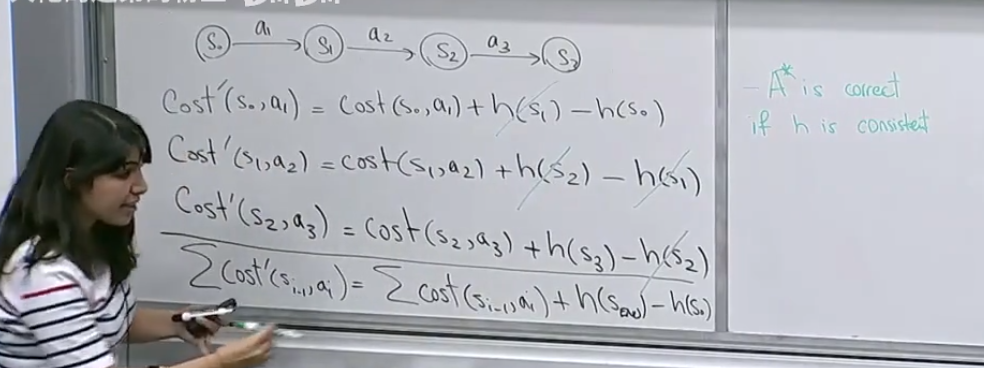 S₀ a₁ S₁ a₂ S₂ a₃ S₃
Cost'(s₀,a₁) = Cost(s₀,a₁) + h(s₁) - h(s₀)
Cost'(s₁,a₂) = cost(s₁,a₂) + h(s₂) - h(s₁)
Cost'(s₂,a₃) = cost(s₂,a₃) + h(s₃) - h(s₂)
∑ cost'(sᵢ₋₁,aᵢ) = ∑ cost(sᵢ₋₁,aᵢ) + h(s_END) - h(s₀)
- A* is correct
if h is consistent